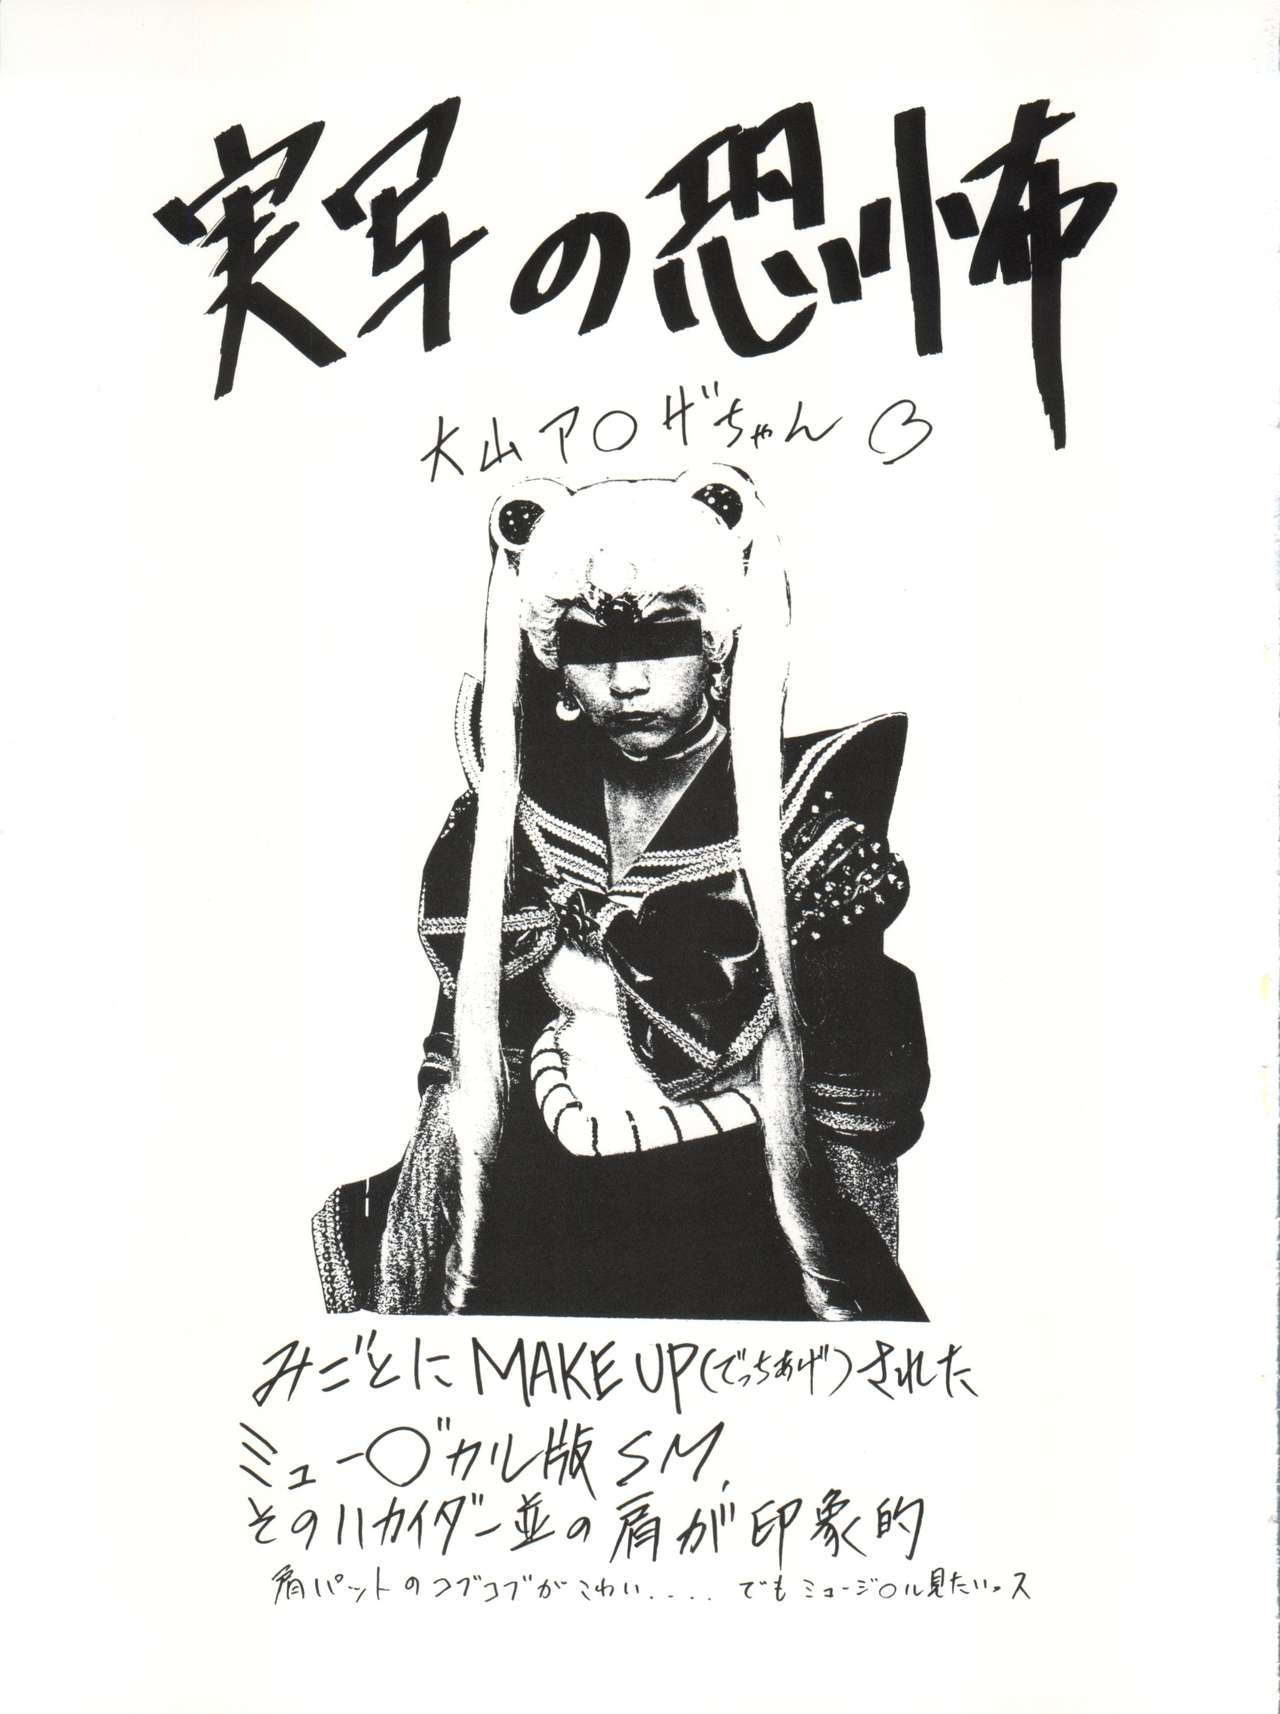 実写の恐怖
大山ア○ザちゃん
みごとにMAKE UP(でっちあげ)された
ミュー○゛カル版SM.
そのハカイダー並の肩が印象的
肩パットのコブコブがこわい.... でもミュージ○ル見たいっス